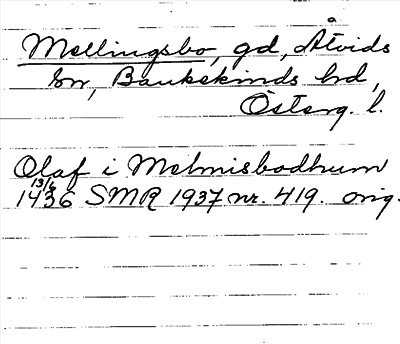 Mellingsbo, gd, Åtvids
sn, Bankekinds hd,
Österg. l.
Olaf i Melmisbodhum
13/6
1436 SMR 1937 nr. 419. orig.